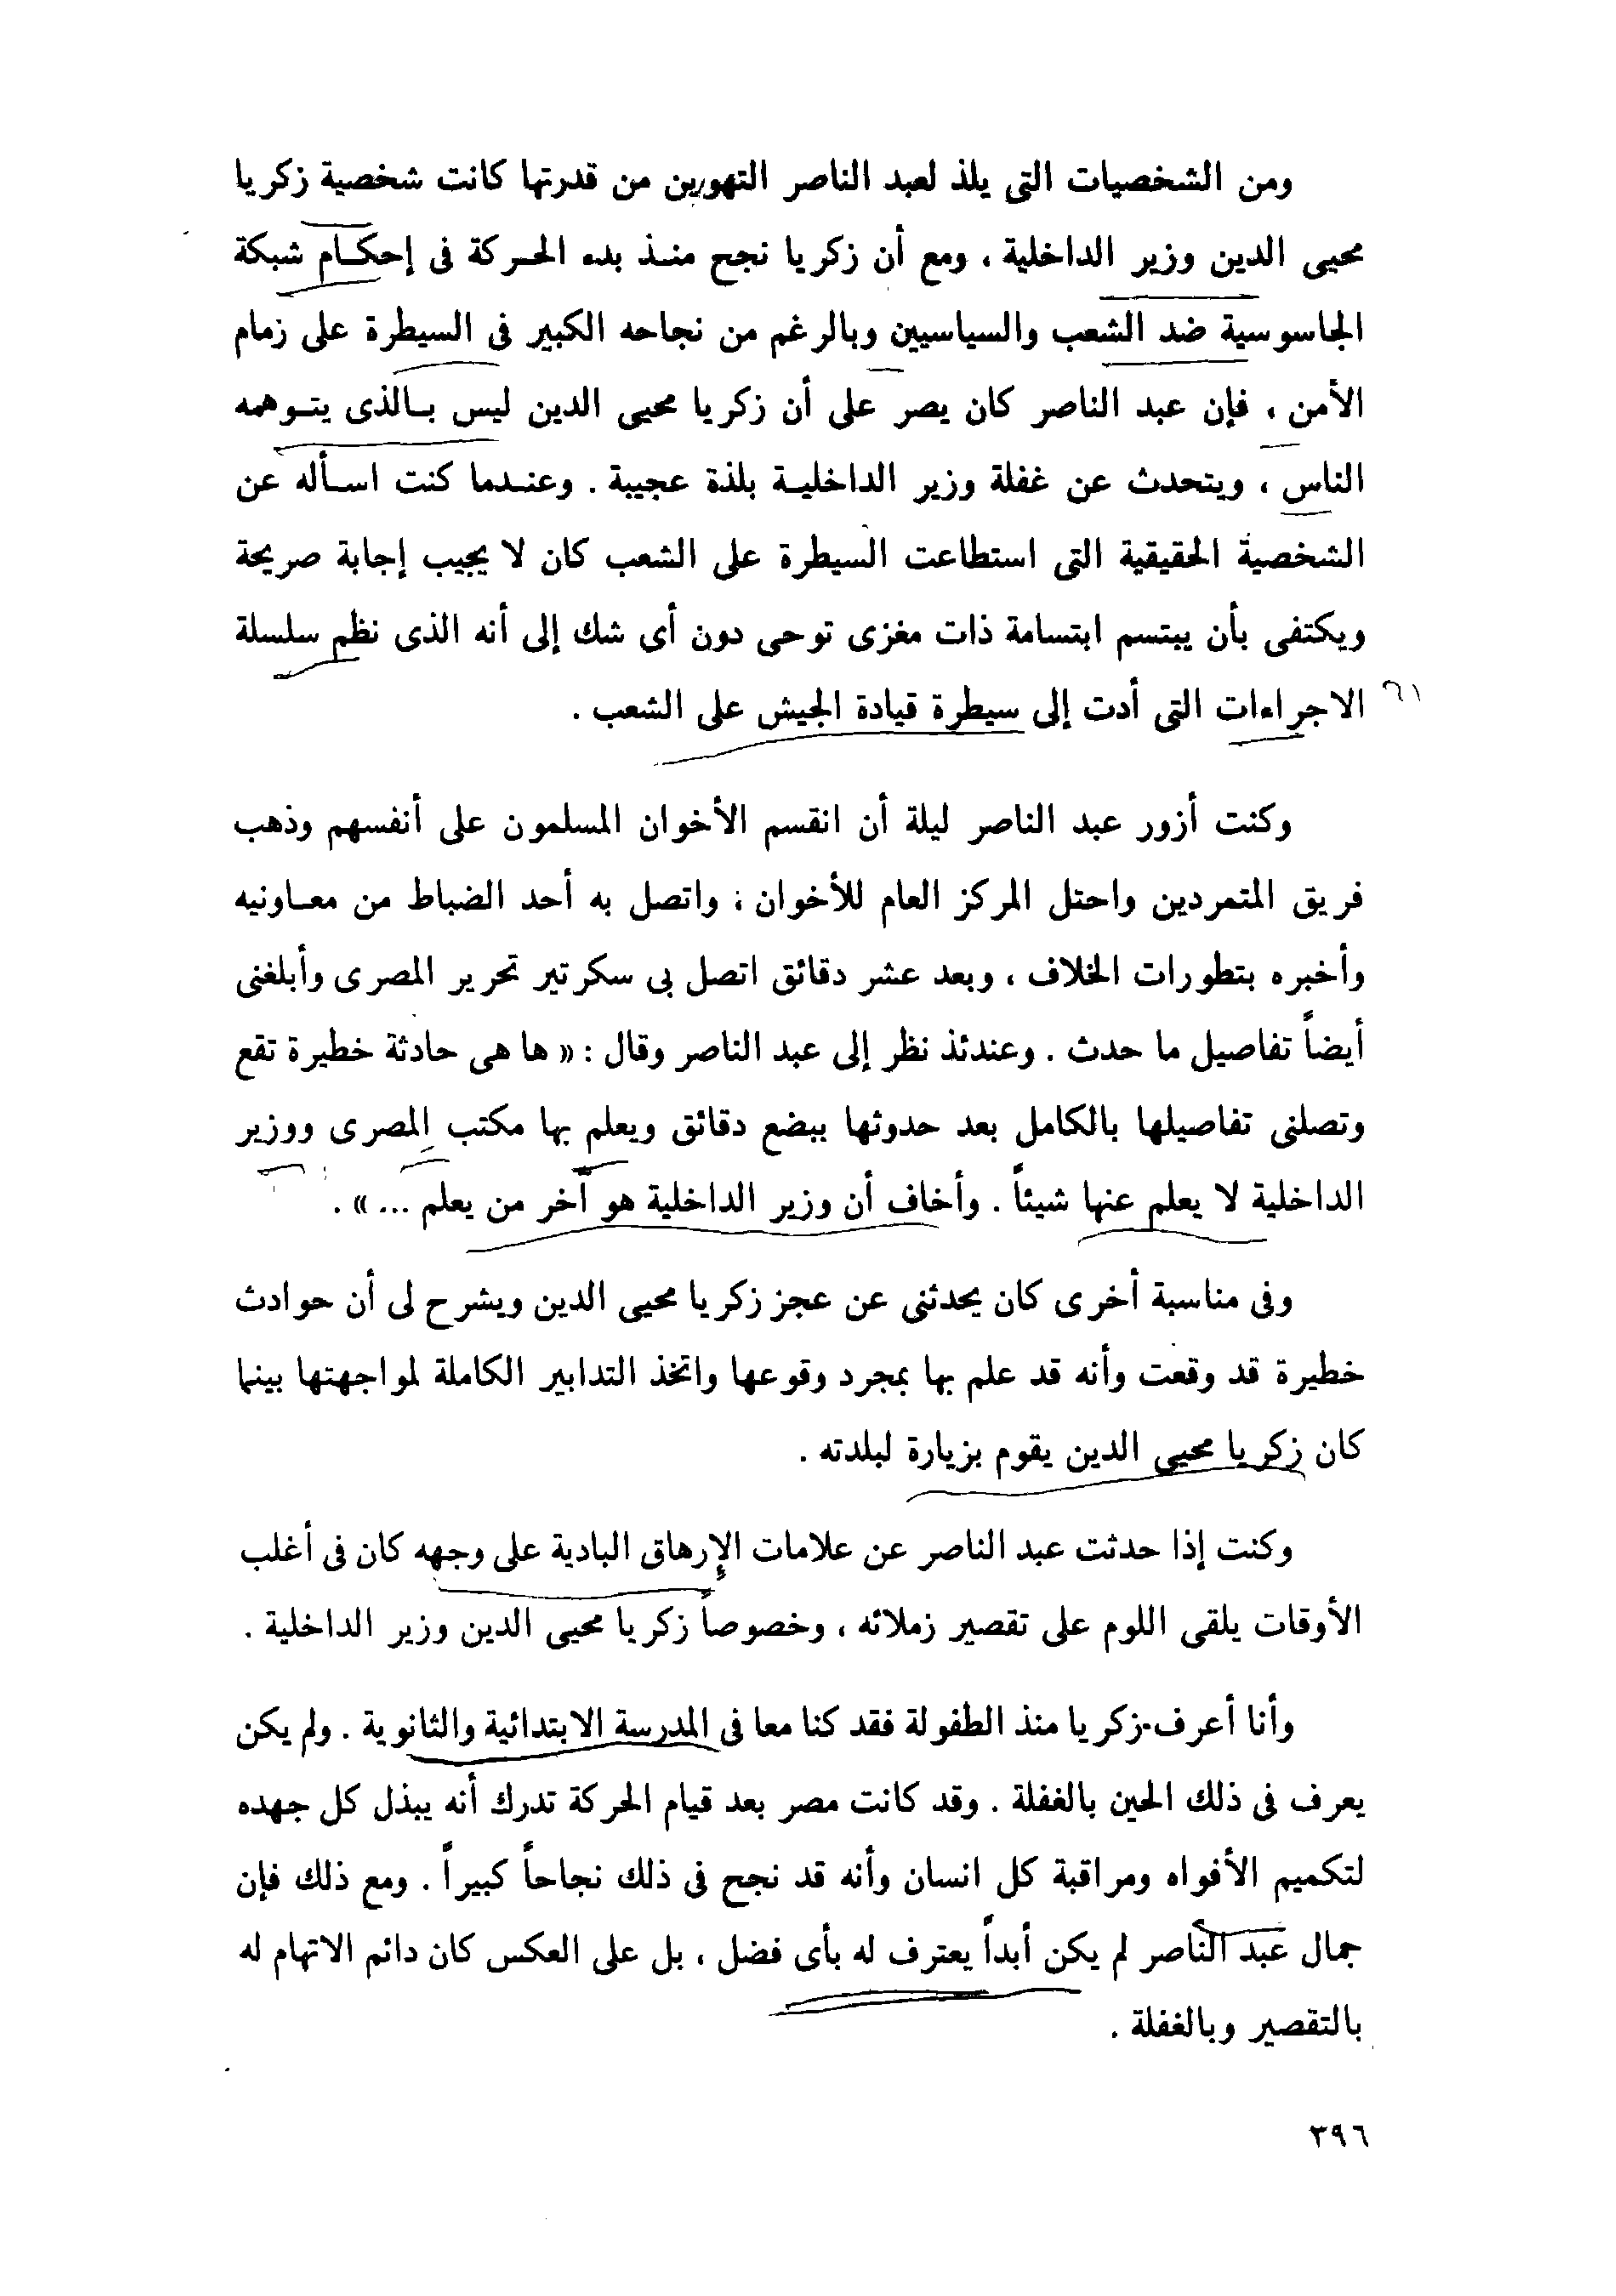 ومن الشخصيات التى يلذ لعبد الناصر التهوين من قدرتها كانت شخصية زكريا
محيى الدين وزير الداخلية ، ومع أن زكريا نجح منذ بدء الحركة فى إحكام شبكة
الجاسوسية ضد الشعب والسياسيين وبالرغم من نجاحه الكبير فى السيطرة على زمام
الأمن ، فإن عبد الناصر كان يصر على أن زكريا محيى الدين ليس بالذى يتوهمه
الناس ، ويتحدث عن غفلة وزير الداخلية بلذة عجيبة . وعندما كنت اسأله عن
الشخصية الحقيقية التى استطاعت السيطرة على الشعب كان لا يجيب إجابة صريحة
ويكتفى بأن يبتسم ابتسامة ذات مغزى توحى دون أى شك إلى أنه الذى نظم سلسلة
الاجراءات التى أدت إلى سيطرة قيادة الجيش على الشعب .
وكنت أزور عبد الناصر ليلة أن انقسم الأخوان المسلمون على أنفسهم وذهب
فريق المتمردين واحتل المركز العام للأخوان ؛ واتصل به أحد الضباط من معاونيه
وأخبره بتطورات الخلاف ، وبعد عشر دقائق اتصل بى سكرتير تحرير المصرى وأبلغنى
أيضاً تفاصيل ما حدث . وعندئذ نظر إلى عبد الناصر وقال : « ها هى حادثة خطيرة تقع
وتصلنى تفاصيلها بالكامل بعد حدوثها ببضع دقائق ويعلم بها مكتب المصرى ووزير
الداخلية لا يعلم عنها شيئاً . وأخاف أن وزير الداخلية هو آخر من يعلم ... » .
وفى مناسبة أخرى كان يحدثنى عن عجز زكريا محيى الدين ويشرح لى أن حوادث
خطيرة قد وقعت وأنه قد علم بها بمجرد وقوعها واتخذ التدابير الكاملة لمواجهتها بينما
كان زكريا محيى الدين يقوم بزيارة لبلدته .
وكنت إذا حدثت عبد الناصر عن علامات الإرهاق البادية على وجهه كان فى أغلب
الأوقات يلقى اللوم على تقصير زملائه ، وخصوصاً زكريا محيى الدين وزير الداخلية .
وأنا أعرف زكريا منذ الطفولة فقد كنا معا فى المدرسة الابتدائية والثانوية . ولم يكن
يعرف فى ذلك الحين بالغفلة . وقد كانت مصر بعد قيام الحركة تدرك أنه يبذل كل جهده
لتكميم الأفواه ومراقبة كل انسان وأنه قد نجح فى ذلك نجاحاً كبيراً . ومع ذلك فإن
جمال عبد الناصر لم يكن أبداً يعترف له بأى فضل ، بل على العكس كان دائم الاتهام له
بالتقصير وبالغفلة .
٣٩٦